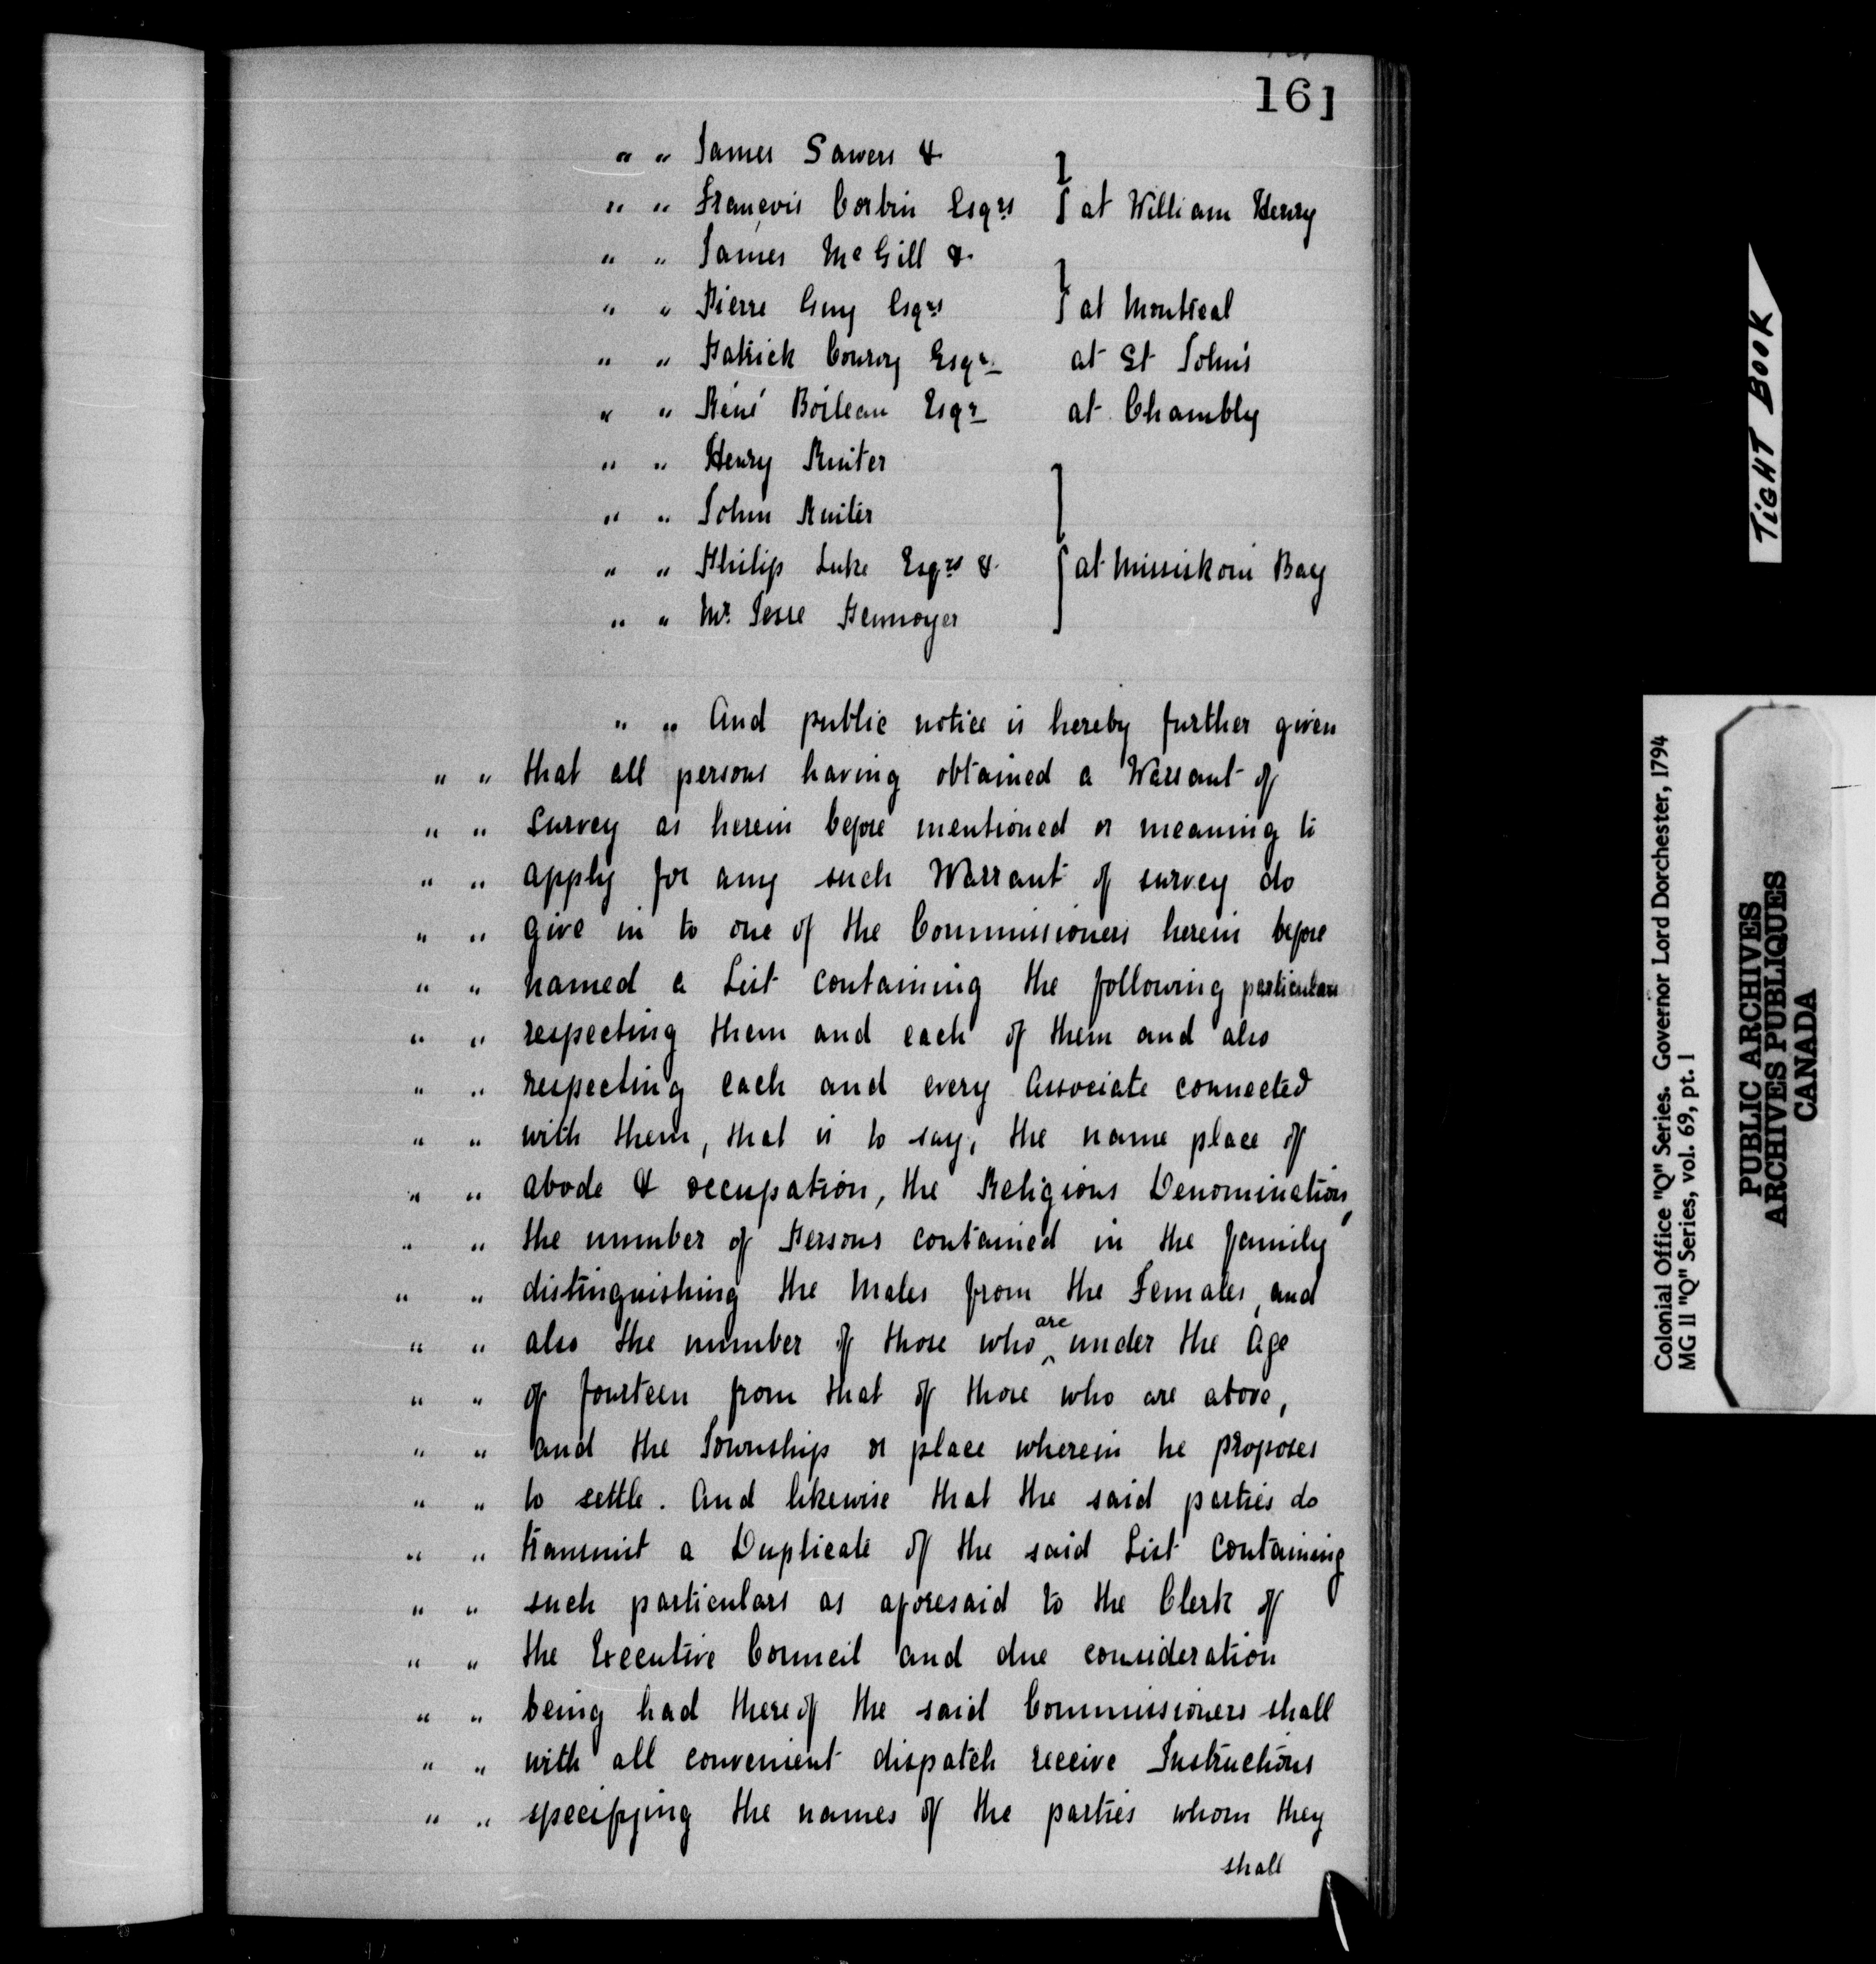 161
" " James Sawers &
" " François Corbin Esqrs } at William Henry
" " James McGill &
" " Pierre Guy Esqrs } at Montreal
" " Patrick Conroy Esqr at St John's
" " Réné Boileau Esqr at Chambly
" " Henry Ruiter
" " John Ruiter
" " Philip Luke Esqrs & } at Missiskoui Bay
" " Mr. Jesse Pennoyer
" " And public notice is hereby further given
" " that all persons having obtained a Warrant of
" " survey as herein before mentioned or meaning to
" " apply for any such Warrant of survey do
" " give in to one of the Commissioners herein before
" " named a List containing the following particulars
" " respecting them and each of them and also
" " respecting each and every Associate connected
" " with them, that is to say, the name place of
" " abode & occupation, the Religious Denomination,
" " the number of Persons contained in the family
" " distinguishing the Males from the Females, and
" " also the number of those who are under the Age
" " of fourteen from that of those who are above,
" " and the Township or place wherein he proposes
" " to settle. And likewise that the said parties do
" " transmit a Duplicate of the said List containing
" " such particulars as aforesaid to the Clerk of
" " the Executive Council and due consideration
" " being had thereof the said Commissioners shall
" " with all convenient dispatch receive Instructions
" " specifying the names of the parties whom they
shall
TIGHT BOOK
Colonial Office "Q" Series. Governor Lord Dorchester, 1794
MG 11 "Q" Series, vol. 69, pt. 1
PUBLIC ARCHIVES
ARCHIVES PUBLIQUES
CANADA